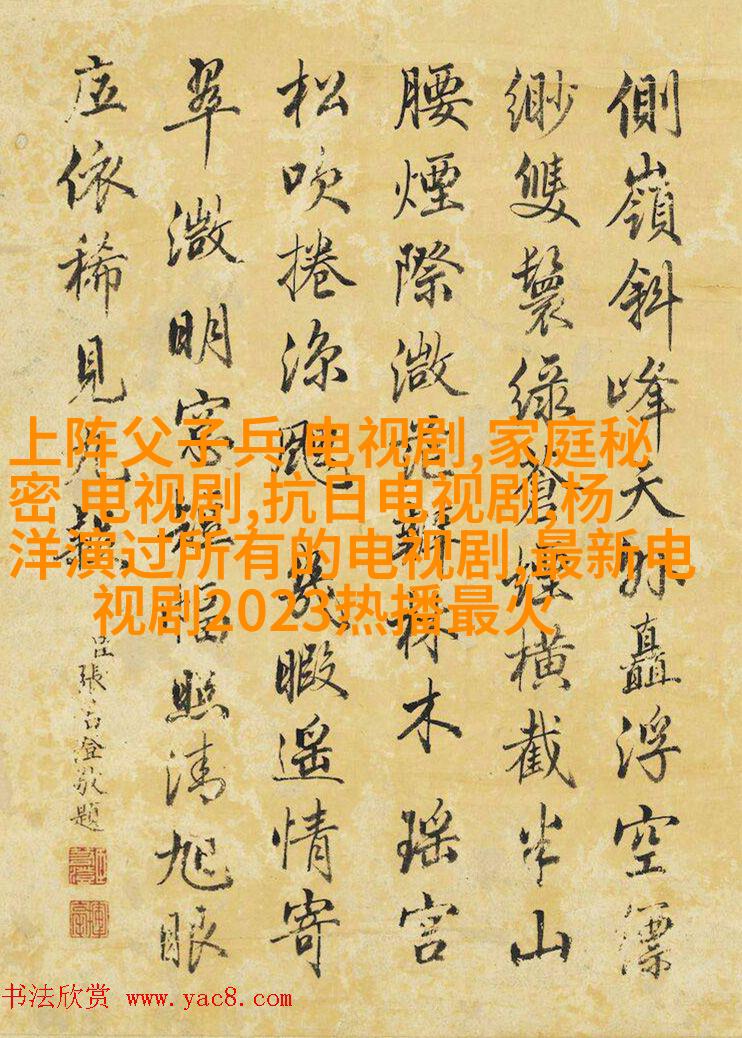 側嶺斜峰天外矗浮空縹
緲雙鬟綠蒼橫截半山
腰煙際微辨木瑤宮
松吹捲涼暇遙情寄
翠微明窗照清旭眼
底依稀見
臣張若澄敬題
上阵父子兵 电视剧,家庭秘
密 电视剧,抗日电视剧,杨
洋演过所有的电视剧,最新电
视剧2023热播最火
书法欣赏 www.yac8.com